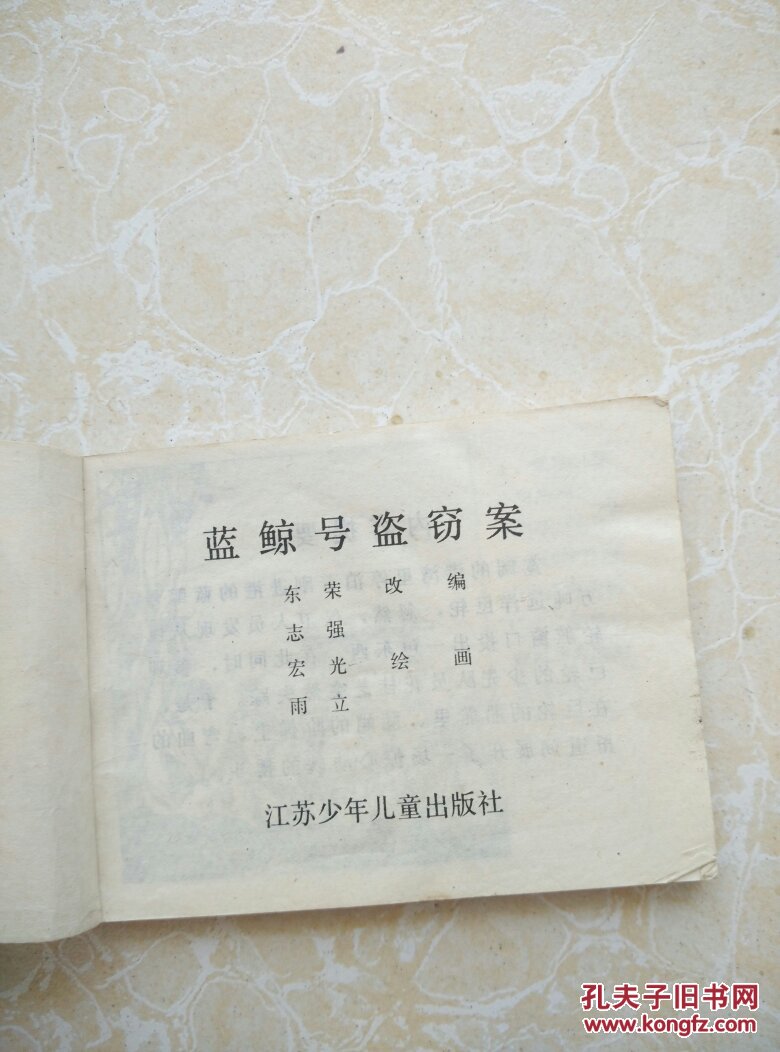 蓝鲸号盗窃案
东荣改编
志强
宏光绘画
雨立
江苏少年儿童出版社
孔夫子旧书网
www.kongfz.com